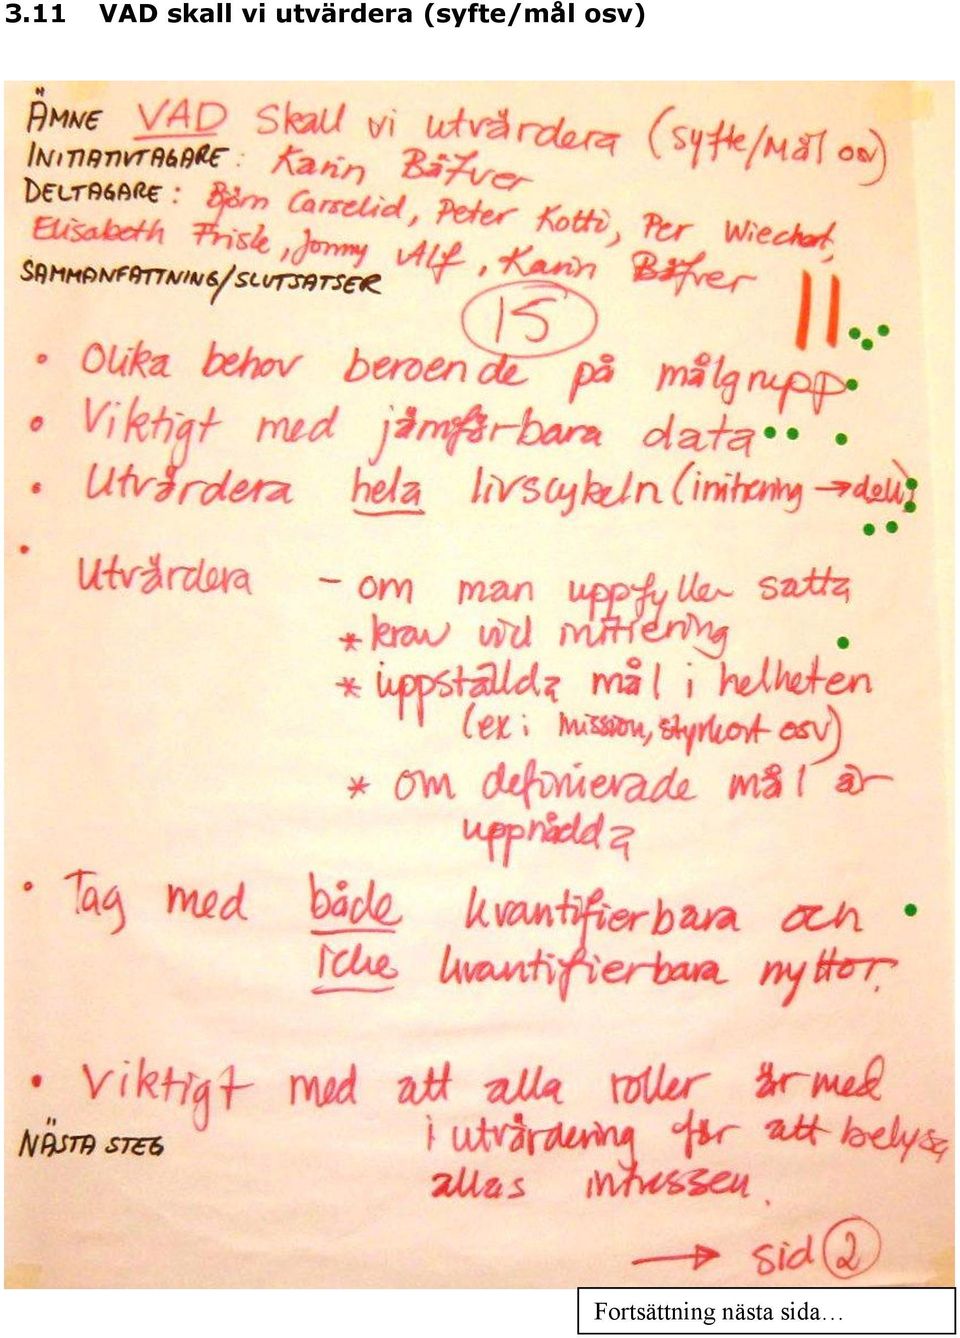 3.11 VAD skall vi utvärdera (syfte/mål osv)
ÄMNE VAD skall vi utvärdera (syfte/mål osv)
INITIATIVTAGARE: Karin Bäfver
DELTAGARE: Björn Carselid, Peter Kotti, Per Wiechert,
Elisabeth Frisk, Jonny Alf, Karin Bäfver
SAMMANFATTNING/SLUTSATSER
15 ||
• Olika behov beroende på målgrupp
• Viktigt med jämförbara data
• Utvärdera hela livscykeln (initiering →
• Utvärdera - om man uppfyller satta
* krav vid initiering
* uppställda mål i helheten
(ex: mission, styrkort osv)
* om definierade mål är
uppnådda
• Tag med både kvantifierbara och
icke kvantifierbara nyttor.
• Viktigt med att alla roller är med
NÄSTA STEG i utvärdering för att belysa
allas intressen.
→ sid 2
Fortsättning nästa sida…